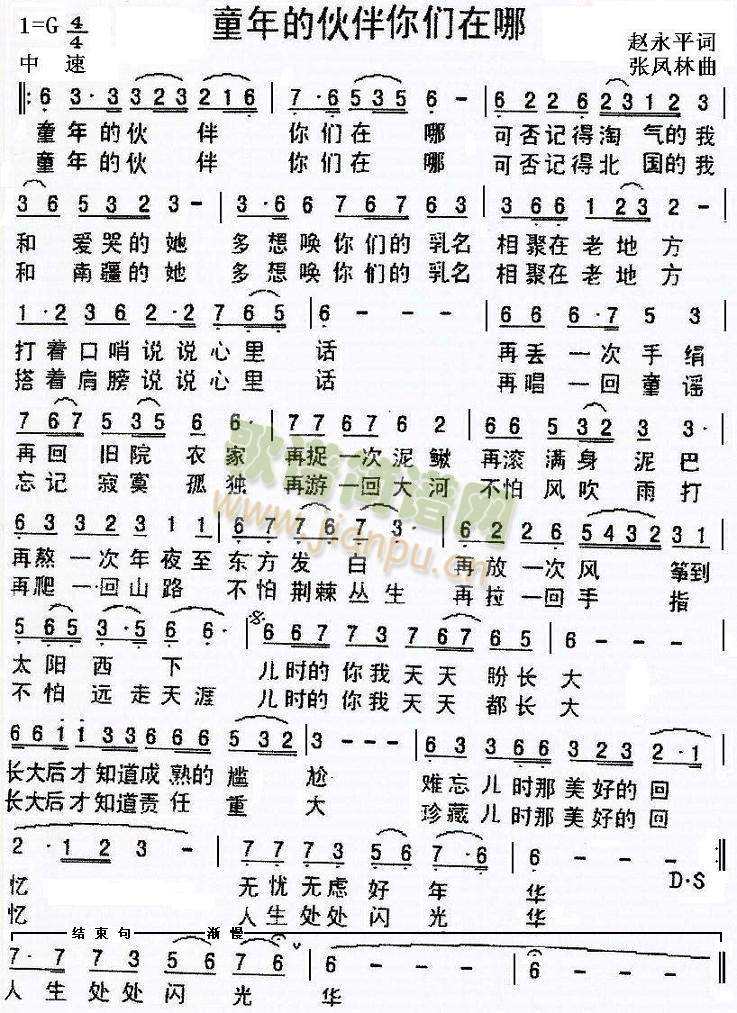 童年的伙伴你们在哪
1=G 4/4
中 速
赵永平词
张凤林曲
6 3·3323216 | 7·6535 6 - | 6 226 23123
童年的伙 伴 你们在 哪 可否记得淘 气的我
童年的伙 伴 你们在 哪 可否记得北 国的我
36 5323 3 - | 3·66 7676 63 | 366 123 2 -
和 爱哭的她 多想唤你们的乳名 相聚在老地 方
和 南疆的她 多想唤你们的乳名 相聚在老地 方
1·2 36 2·2 765 | 6 - - - | 66 6·7 5 3
打着口哨说说心里 话 再丢 一次手绢
搭着肩膀说说心里 话 再唱 一回童谣
767 535 6 6· | 77676 6 2 | 66 532 3 3·
再回 旧院 农 家 再捉一次泥鳅 再滚 满身 泥 巴
忘记 寂寞 孤 独 再游一回大河 不怕 风吹 雨 打
歌谱简谱网
www.jianpu.cn
63 323 11 | 677 67 3· | 62 26 5432 31
再熬 一次年夜至 东方发 白 再放 一次风 筝到
再爬 一回山路 不怕荆棘丛生 再拉 一回手 指
565 3·5 6 6· | 667 73 767 65 | 6 - - -
太阳 西 下 儿时的你我 天天 盼长 大
不怕 远走天涯 儿时的你我 天天 都长 大
661 133 666 532 | 3 - - - | 63 366 323 2·1
长大后才知道成熟的 尴 尬 难忘儿时那美好的回
长大后才知道责任 重 大 珍藏儿时那美好的回
2 · 12 3 - | 77 73 56 7·6 | 6 - - :||
忆 无忧无虑好 年 华
忆 人生处处闪光 华
D·S
结束句 渐慢
7·7 73 56 7 6 | 6 - - - | 6 - - - ||
人生 处处 闪 光 华